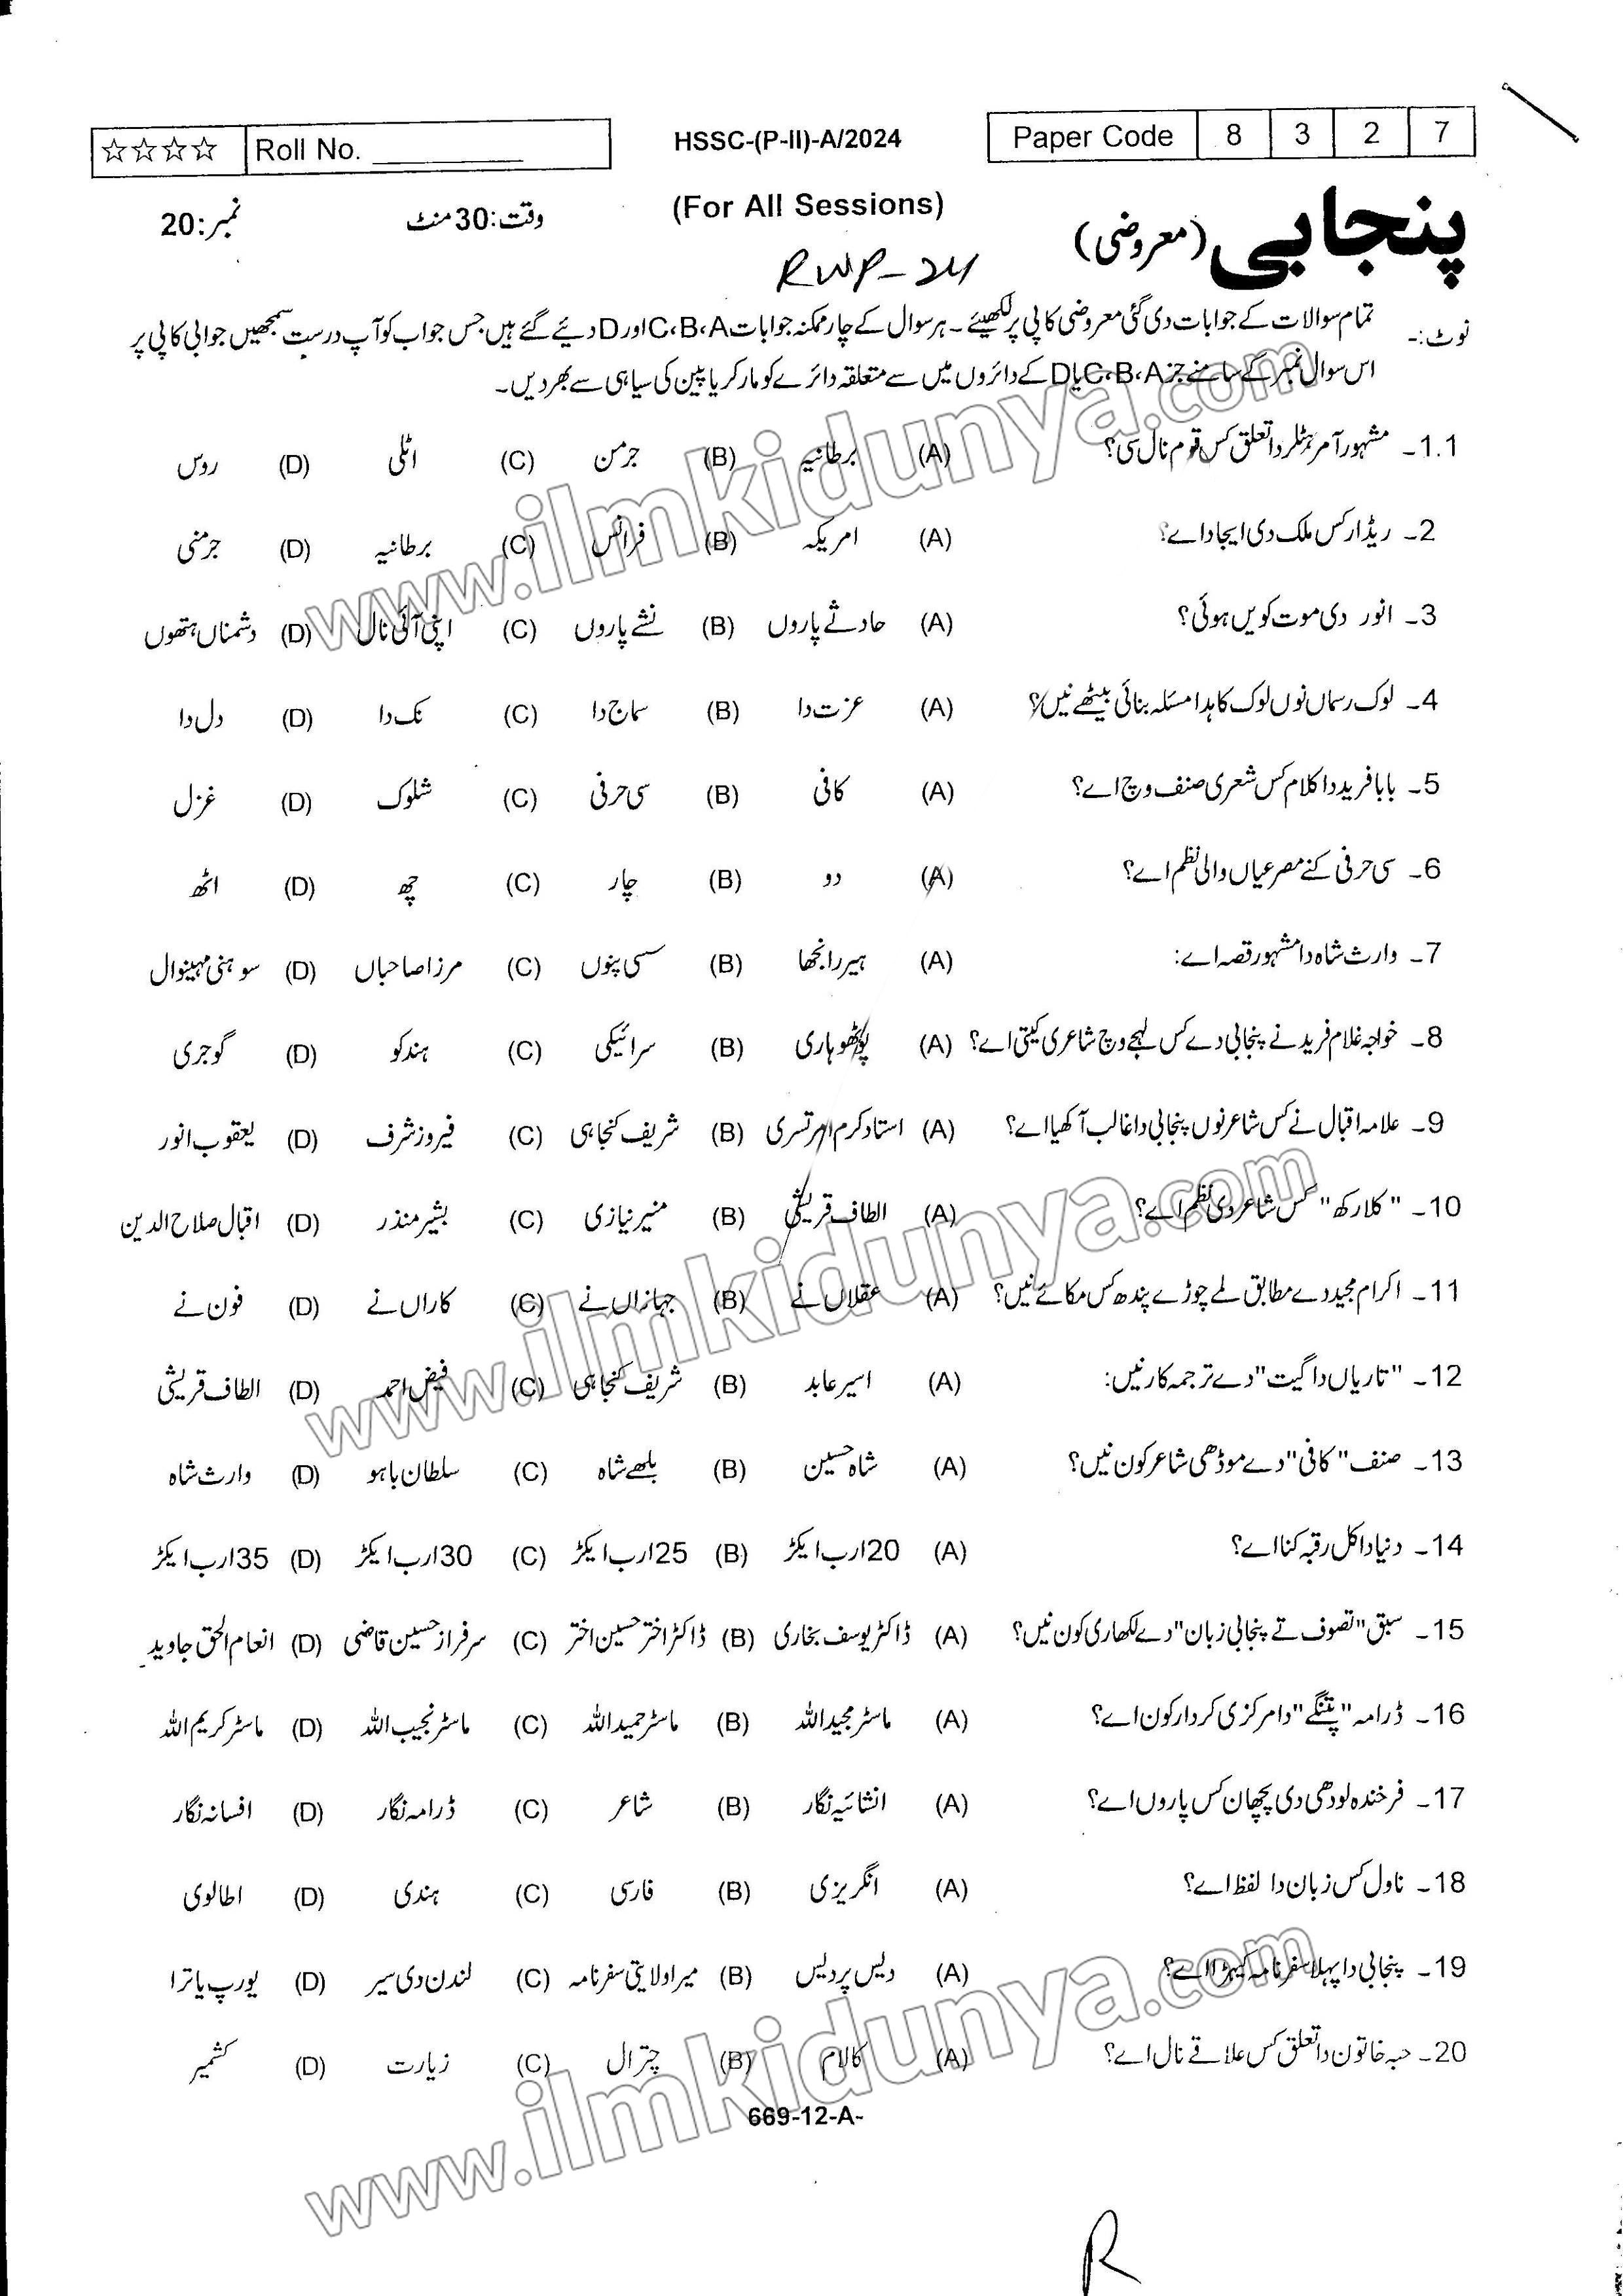 ☆☆☆☆ Roll No. __________ HSSC-(P-II)-A/2024 Paper Code 8 3 2 7
(For All Sessions)
پنجابی (معروضی) وقت:30 منٹ نمبر:20
RWP-24
نوٹ:- تمام سوالات کے جوابات دی گئی معروضی کاپی پر لکھیئے۔ ہر سوال کے چار ممکنہ جوابات C،B،A اور D دیئے گئے ہیں جس جواب کو آپ درست سمجھیں جوابی کاپی پر
اس سوال نمبر کے سامنے جز C،B،A یا D کے دائروں میں سے متعلقہ دائرے کو مارکر یا پین کی سیاہی سے بھر دیں۔
1.1۔ مشہور آمر ہٹلر دا تعلق کس قوم نال سی؟ (A) برطانیہ (B) جرمن (C) اٹلی (D) روس
2۔ ریڈار کس ملک دی ایجاد اے؟ (A) امریکہ (B) فرانس (C) برطانیہ (D) جرمنی
3۔ انور دی موت کویں ہوئی؟ (A) حادثے پاروں (B) نشے پاروں (C) اپنی آئی نال (D) دشمناں ہتھوں
4۔ لوک رسماں نوں لوک کاہدا مسئلہ بنائی بیٹھے نیں؟ (A) عزت دا (B) سماج دا (C) نک دا (D) دل دا
5۔ بابا فرید دا کلام کس شعری صنف وچ اے؟ (A) کافی (B) سی حرفی (C) شلوک (D) غزل
6۔ سی حرفی کنے مصرعیاں والی نظم اے؟ (A) دو (B) چار (C) چھ (D) اٹھ
7۔ وارث شاہ دا مشہور قصہ اے: (A) ہیر رانجھا (B) سسی پنوں (C) مرزا صاحباں (D) سوہنی مہینوال
8۔ خواجہ غلام فرید نے پنجابی دے کس لہجے وچ شاعری کیتی اے؟ (A) پوٹھوہاری (B) سرائیکی (C) ہندکو (D) گوجری
9۔ علامہ اقبال نے کس شاعر نوں پنجابی دا غالب آکھیا اے؟ (A) استاد کرم امرتسری (B) شریف کنجاہی (C) فیروز شرف (D) یعقوب انور
10۔ "کلا رکھ" کس شاعر دی نظم اے؟ (A) الطاف قریشی (B) منیر نیازی (C) بشیر منذر (D) اقبال صلاح الدین
11۔ اکرام مجید دے مطابق لمے چوڑے پندھ کس مکائے نیں؟ (A) عقلاں نے (B) جہازاں نے (C) کاراں نے (D) فون نے
12۔ "تاریاں دا گیت" دے ترجمہ کار نیں: (A) اسیر عابد (B) شریف کنجاہی (C) فیض احمد (D) الطاف قریشی
13۔ صنف "کافی" دے موڈھی شاعر کون نیں؟ (A) شاہ حسین (B) بلھے شاہ (C) سلطان باہو (D) وارث شاہ
14۔ دنیا دا کل رقبہ کنا اے؟ (A) 20 ارب ایکڑ (B) 25 ارب ایکڑ (C) 30 ارب ایکڑ (D) 35 ارب ایکڑ
15۔ سبق "تصوف تے پنجابی زبان" دے لکھاری کون نیں؟ (A) ڈاکٹر یوسف بخاری (B) ڈاکٹر اختر حسین اختر (C) سرفراز حسین قاضی (D) انعام الحق جاوید
16۔ ڈرامہ "پتنگے" دا مرکزی کردار کون اے؟ (A) ماسٹر مجید اللہ (B) ماسٹر حمید اللہ (C) ماسٹر نجیب اللہ (D) ماسٹر کریم اللہ
17۔ فرخندہ لودھی دی پچھان کس پاروں اے؟ (A) انشائیہ نگار (B) شاعر (C) ڈرامہ نگار (D) افسانہ نگار
18۔ ناول کس زبان دا لفظ اے؟ (A) انگریزی (B) فارسی (C) ہندی (D) اطالوی
19۔ پنجابی دا پہلا سفرنامہ کیہڑا اے؟ (A) دیس پردیس (B) میرا ولایتی سفرنامہ (C) لندن دی سیر (D) یورپ یاترا
20۔ حبہ خاتون دا تعلق کس علاقے نال اے؟ (A) کالام (B) چترال (C) زیارت (D) کشمیر
669-12-A-
R
www.ilmkidunya.com
www.ilmkidunya.com
www.ilmkidunya.com